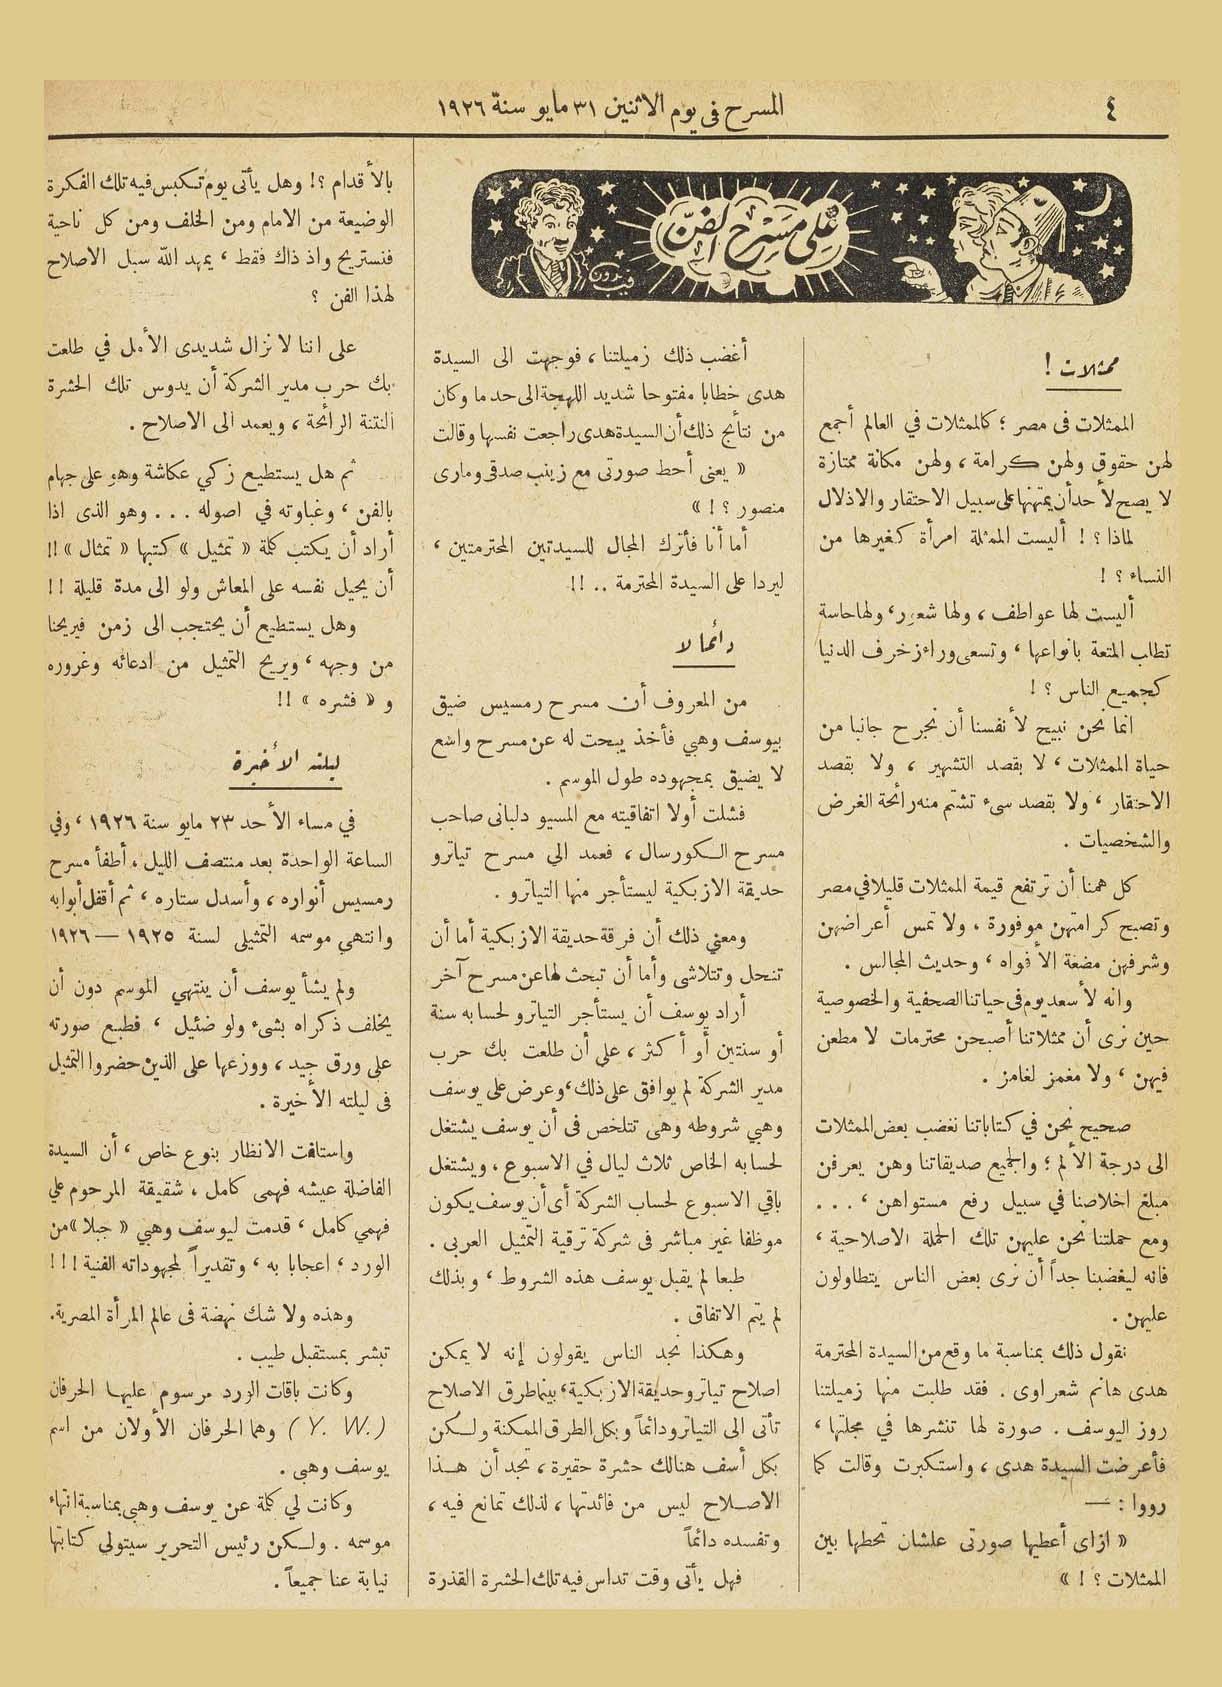 ٤
المسرح فى يوم الاثنين ٣١ مايو سنة ١٩٢٦
على مسرح الفن
ممثلات !
الممثلات فى مصر ؛ كالممثلات في العالم أجمع
لهن حقوق ولهن كرامة ، ولهن مكانة ممتازة
لا يصح لأحد أن يمتهنها على سبيل الاحتقار والاذلال
لماذا ؟ ! أليست الممثلة امرأة كغيرها من
النساء ؟ !
أليست لها عواطف ، ولها شعور ، ولها حاسة
تطلب المتعة بانواعها ، وتسعى وراء زخرف الدنيا
كجميع الناس ؟ !
انما نحن نبيح لأنفسنا أن نجرح جانبا من
حياة الممثلات ، لا بقصد التشهير ، ولا بقصد
الاحتقار ، ولا بقصد سىء تشتم منه رائحة الغرض
والشخصيات .
كل همنا أن ترتفع قيمة الممثلات قليلا في مصر
وتصبح كرامتهن موفورة ، ولا تمس أعراضهن
وشرفهن مضغة الأفواه ، وحديث المجالس .
وانه لأسعد يوم فى حياتنا الصحفية والخصوصية
حين نرى أن ممثلاتنا أصبحن محترمات لا مطعن
فيهن ، ولا مغمز لغامز .
صحيح نحن في كتاباتنا نغضب بعض الممثلات
الى درجة الألم ؛ والجميع صديقاتنا وهن يعرفن
مبلغ اخلاصنا في سبيل رفع مستواهن ، . . .
ومع حملتنا نحن عليهن تلك الحملة الاصلاحية ،
فانه ليغضبنا جداً أن نرى بعض الناس يتطاولون
عليهن .
نقول ذلك بمناسبة ما وقع من السيدة المحترمة
هدى هانم شعراوى . فقد طلبت منها زميلتنا
روز اليوسف . صورة لها تنشرها في مجلتها ،
فأعرضت السيدة هدى ، واستكبرت وقالت كما
رووا : —
« ازاى أعطيها صورتى علشان تحطها بين
الممثلات ؟ ! »
أغضب ذلك زميلتنا ، فوجهت الى السيدة
هدى خطابا مفتوحا شديد اللهجة الى حد ما وكان
من نتأنج ذلك أن السيدة هدى راجعت نفسها وقالت
« يعنى أحط صورتى مع زينب صدقى ومارى
منصور ؟ ! »
أما أنا فأترك المجال للسيدتين المحترمتين ،
ليردا على السيدة المحترمة .. !!
دائما لا
من المعروف أن مسرح رمسيس ضيق
بيوسف وهبي فأخذ يبحث له عن مسرح واسع
لا يضيق بمجهوده طول الموسم .
فشلت أولا اتفاقيته مع المسيو دلبانى صاحب
مسرح الكورسال ، فعمد الي مسرح تياترو
حديقة الازبكية ليستأجر منها التياترو .
ومعني ذلك أن فرقة حديقة الازبكية أما أن
تنحل وتتلاشى وأما أن تبحث لها عن مسرح آخر
أراد يوسف أن يستأجر التياترو لحسابه سنة
أو سنتين أو أكثر ، علي أن طلعت بك حرب
مدير الشركة لم يوافق على ذلك ، وعرض على يوسف
وهبي شروطه وهى تتلخص فى أن يوسف يشتغل
لحسابه الخاص ثلاث ليال في الاسبوع ، ويشتغل
باقي الاسبوع لحساب الشركة أى أن يوسف يكون
موظفا غير مباشر فى شركة ترقية التمثيل العربى .
طبعا لم يقبل يوسف هذه الشروط ، وبذلك
لم يتم الاتفاق .
وهكذا نجد الناس يقولون إنه لا يمكن
اصلاح تياترو حديقة الازبكية ، بينما طرق الاصلاح
تأتى الى التياترو دائماً وبكل الطرق الممكنة ولكن
بكل أسف هنالك حشرة حقيرة ، تجد أن هذا
الاصلاح ليس من فائدتها ، لذلك تمانع فيه ،
وتفسده دائماً
فهل يأتى وقت تداس فيه تلك الحشرة القذرة
بالأقدام ؟! وهل يأتى يوم تكبس فيه تلك الفكرة
الوضيعة من الامام ومن الخلف ومن كل ناحية
فنستريح واذ ذاك فقط ، يمهد الله سبل الاصلاح
لهذا الفن ؟
على اننا لا نزال شديدى الأمل في طلعت
بك حرب مدير الشركة أن يدوس تلك الحشرة
النتنة الرائحة ، ويعمد الى الاصلاح .
ثم هل يستطيع زكي عكاشة وهو على جهله
بالفن ، وغباوته في اصوله . . . وهو الذى اذا
أراد أن يكتب كلمة « تمثيل » كتبها « تمثال » !!
أن يحيل نفسه على المعاش ولو الى مدة قليلة !!
وهل يستطيع أن يحتجب الى زمن فيريحنا
من وجهه ، ويريح التمثيل من ادعائه وغروره
و « فشره » !!
ليلته الأخيرة
في مساء الأحد ٢٣ مايو سنة ١٩٢٦ ، وفي
الساعة الواحدة بعد منتصف الليل ، أطفأ مسرح
رمسيس أنواره ، وأسدل ستاره ، ثم أقفل أبوابه
وانتهي موسمه التمثيلى لسنة ١٩٢٥ — ١٩٢٦
ولم يشأ يوسف أن ينتهي الموسم دون أن
يخلف ذكراه بشىء ولو ضئيل ، فطبع صورته
على ورق جيد ، ووزعها على الذين حضروا التمثيل
فى ليلته الأخيرة .
واستلفت الانظار بنوع خاص ، أن السيدة
الفاضلة عيشه فهمى كامل ، شقيقة المرحوم علي
فهمي كامل ، قدمت ليوسف وهبي « جبلا » من
الورد ، اعجابا به ، وتقديراً لمجهوداته الفنية !!!
وهذه ولا شك نهضة فى عالم المرأة المصرية .
تبشر بمستقبل طيب .
وكانت باقات الورد مرسوم عليها الحرفان
(Y. W.) وهما الحرفان الأولان من اسم
يوسف وهبى .
وكانت لي كلمة عن يوسف وهبى بمناسبة انتهاء
موسمه . ولكن رئيس التحرير سيتولي كتابتها
نيابة عنا جميعاً .